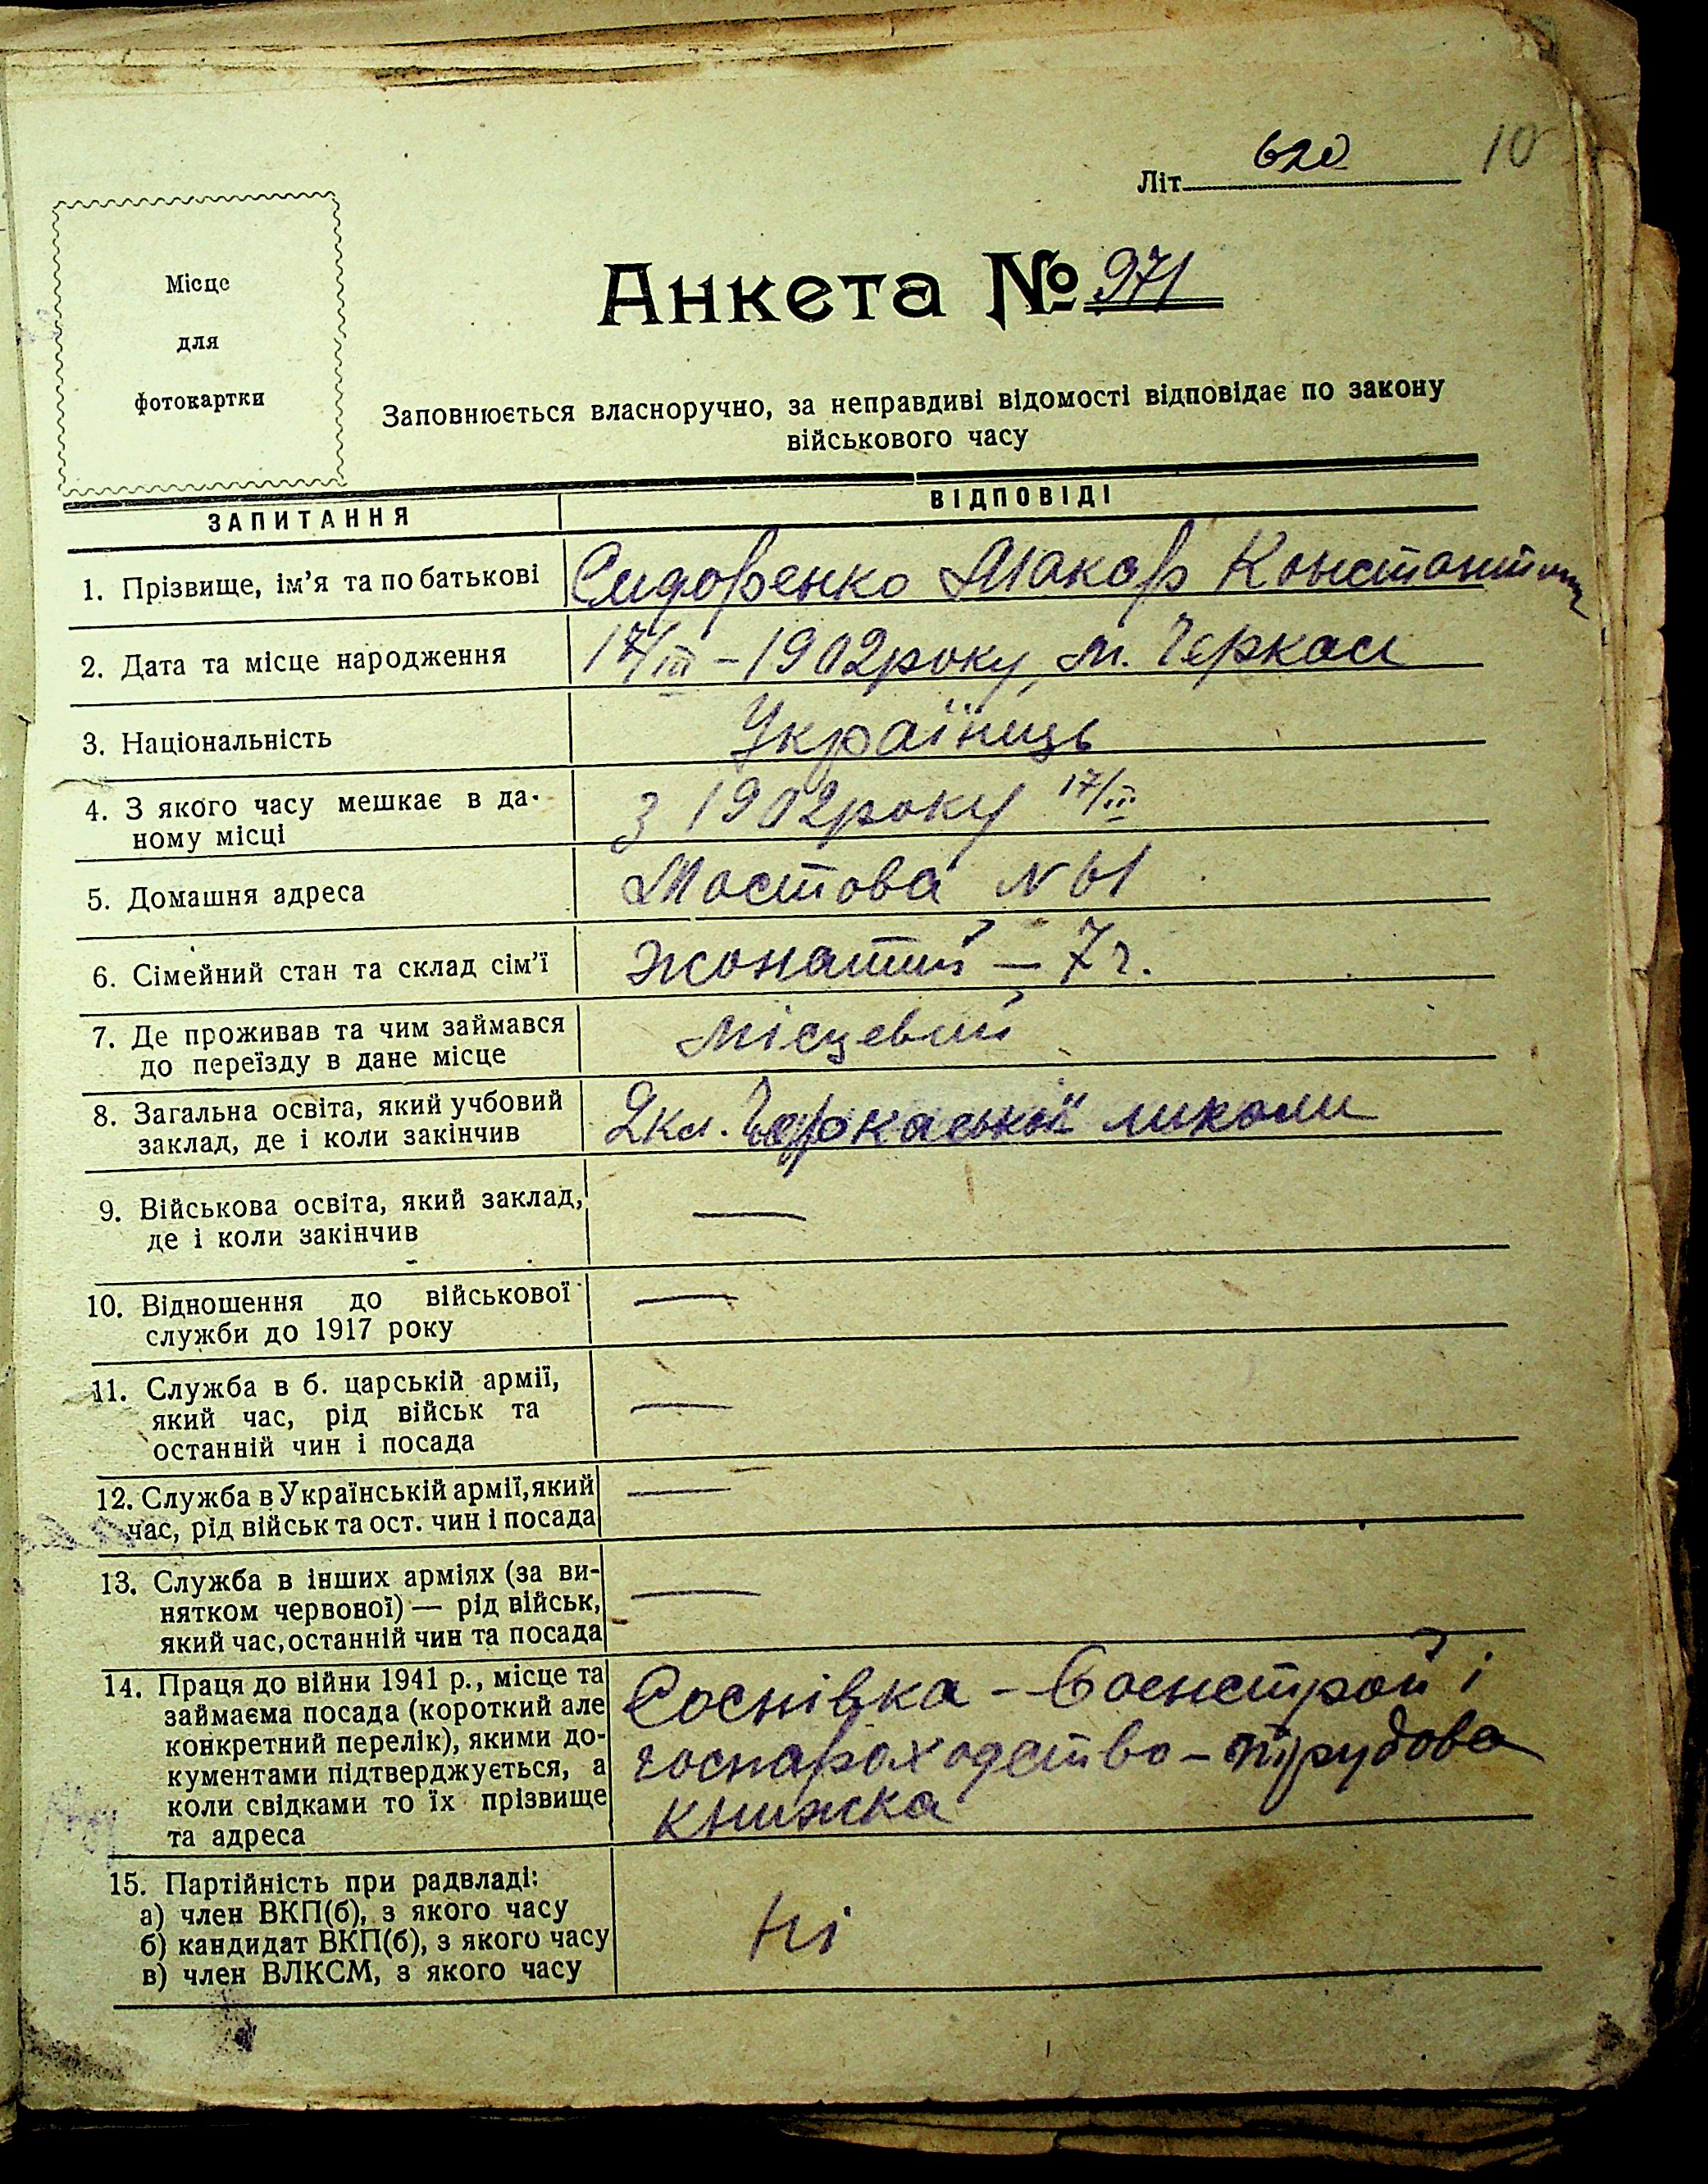 10
Літ. 620
Місце
для
фотокартки
Анкета № 971
Заповнюється власноручно, за неправдиві відомості відповідає по закону
військового часу
ЗАПИТАННЯ
ВІДПОВІДІ
1. Прізвище, ім'я та по батькові
Сидоренко Макар Константин
2. Дата та місце народження
17/III – 1902 року, м. Черкаси
3. Національність
Українець
4. З якого часу мешкає в да-
ному місці
З 1902 року 17/III
5. Домашня адреса
Мостова N 61
6. Сімейний стан та склад сім'ї
жонатий – 7 ч.
7. Де проживав та чим займався
до переїзду в дане місце
місцевий
8. Загальна освіта, який учбовий
заклад, де і коли закінчив
2 кл. Черкаської школи
9. Військова освіта, який заклад,
де і коли закінчив
—
10. Відношення до військової
служби до 1917 року
—
11. Служба в б. царській армії,
який час, рід військ та
останній чин і посада
—
12. Служба в Українській армії, який
час, рід військ та ост. чин і посада
—
13. Служба в інших арміях (за ви-
нятком червоної) — рід військ,
який час, останній чин та посада
—
14. Праця до війни 1941 р., місце та
займаєма посада (короткий але
конкретний перелік), якими до-
кументами підтверджується, а
коли свідками то їх прізвище
та адреса
Соснівка – Воєнстрой і
госпароходство – трудова
книжка
15. Партійність при радвладі:
а) член ВКП(б), з якого часу
б) кандидат ВКП(б), з якого часу
в) член ВЛКСМ, з якого часу
Ні